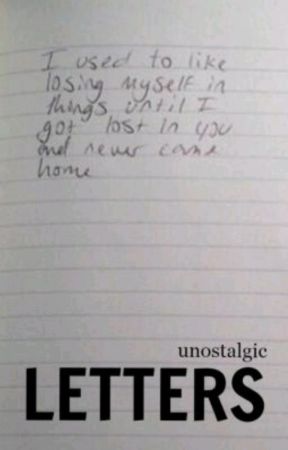 I used to like
losing myself in
things, until I
got lost in you
and never came
home
unostalgic
LETTERS